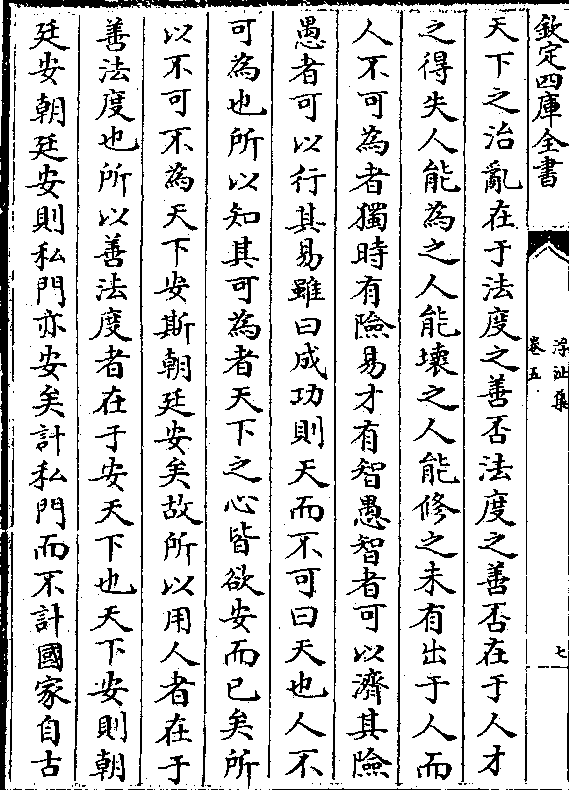 欽定四庫全書
浮沚集
卷五
七
天下之治亂在于法度之善否法度之善否在于人才
之得失人能為之人能壞之人能修之未有出于人而
人不可為者獨時有險易才有智愚智者可以濟其險
愚者可以行其易雖曰成功則天而不可曰天也人不
可為也所以知其可為者天下之心皆欲安而已矣所
以不可不為天下安斯朝廷安矣故所以用人者在于
善法度也所以善法度者在于安天下也天下安則朝
廷安朝廷安則私門亦安矣計私門而不計國家自古